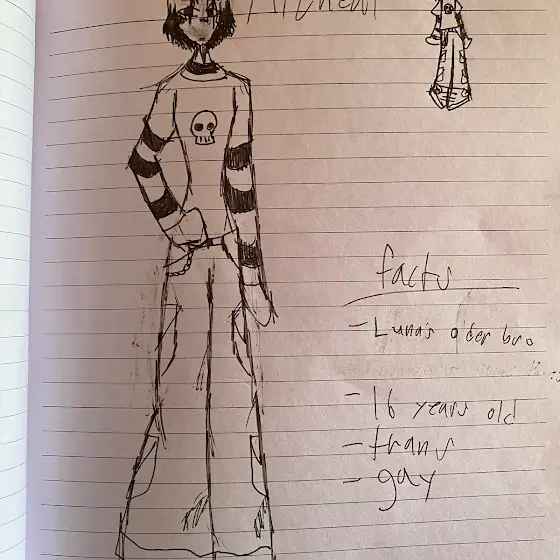 facts
- Luna's older bro
- 16 years old
- trans
- gay